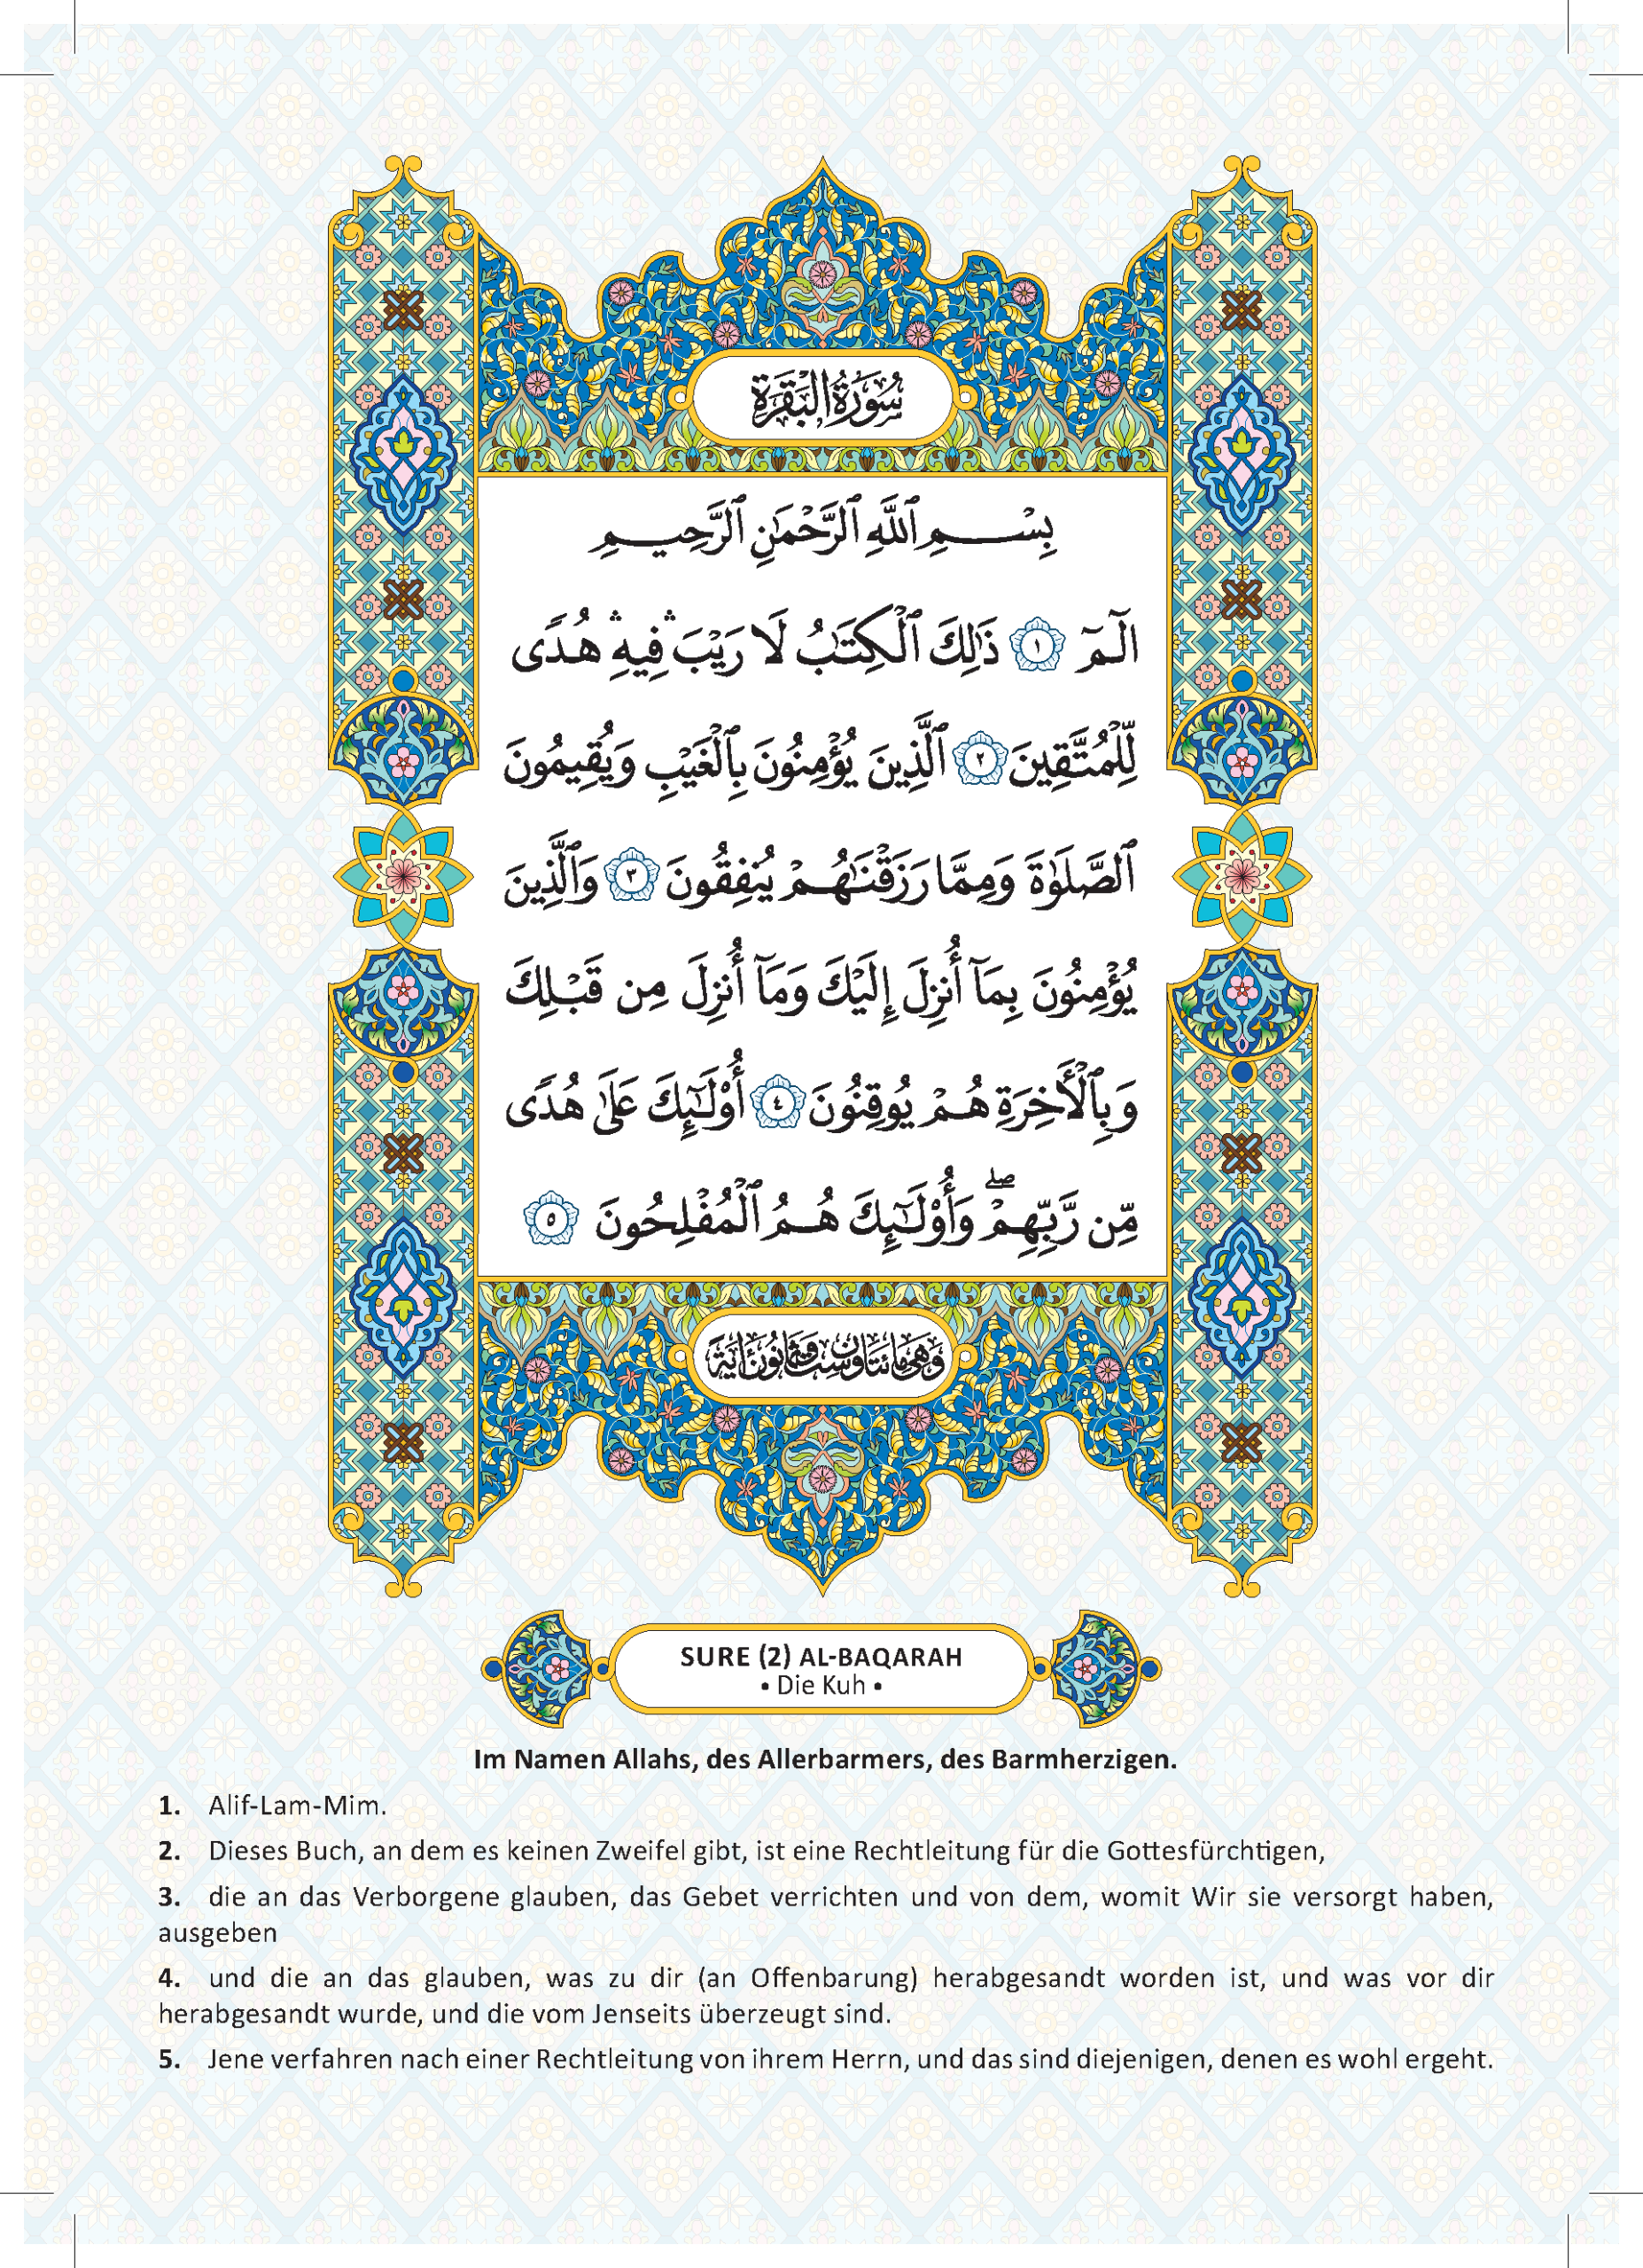 سُورَةُ البَقَرَةِ
بِسْمِ ٱللَّهِ ٱلرَّحْمَٰنِ ٱلرَّحِيمِ
الٓمٓ ١ ذَٰلِكَ ٱلْكِتَٰبُ لَا رَيْبَ ۛ فِيهِ ۛ هُدًى
لِّلْمُتَّقِينَ ٢ ٱلَّذِينَ يُؤْمِنُونَ بِٱلْغَيْبِ وَيُقِيمُونَ
ٱلصَّلَوٰةَ وَمِمَّا رَزَقْنَٰهُمْ يُنفِقُونَ ٣ وَٱلَّذِينَ
يُؤْمِنُونَ بِمَآ أُنزِلَ إِلَيْكَ وَمَآ أُنزِلَ مِن قَبْلِكَ
وَبِٱلْأَخِرَةِ هُمْ يُوقِنُونَ ٤ أُو۟لَٰٓئِكَ عَلَىٰ هُدًى
مِّن رَّبِّهِمْ ۖ وَأُو۟لَٰٓئِكَ هُمُ ٱلْمُفْلِحُونَ ٥
وَهِيَ مِائَتَانِ وَسِتٌّ وَثَمَانُونَ آيَةً
SURE (2) AL-BAQARAH
• Die Kuh •
Im Namen Allahs, des Allerbarmers, des Barmherzigen.
1. Alif-Lam-Mim.
2. Dieses Buch, an dem es keinen Zweifel gibt, ist eine Rechtleitung für die Gottesfürchtigen,
3. die an das Verborgene glauben, das Gebet verrichten und von dem, womit Wir sie versorgt haben,
ausgeben
4. und die an das glauben, was zu dir (an Offenbarung) herabgesandt worden ist, und was vor dir
herabgesandt wurde, und die vom Jenseits überzeugt sind.
5. Jene verfahren nach einer Rechtleitung von ihrem Herrn, und das sind diejenigen, denen es wohl ergeht.